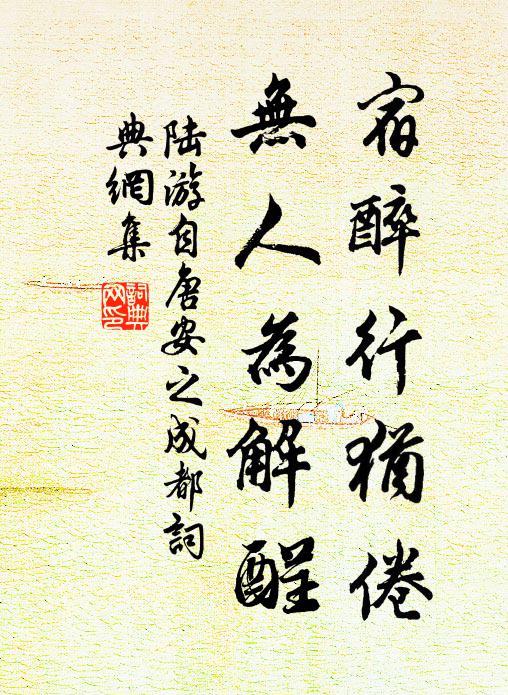 宿醉行猶倦
無人為解酲
陸游自唐安之成都詞
典網集
詞典
网印